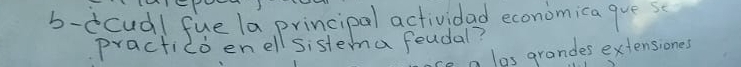 b-¿cuál fue la principal actividad económica que se
practicó en el sistema feudal?
a las grandes extensiones